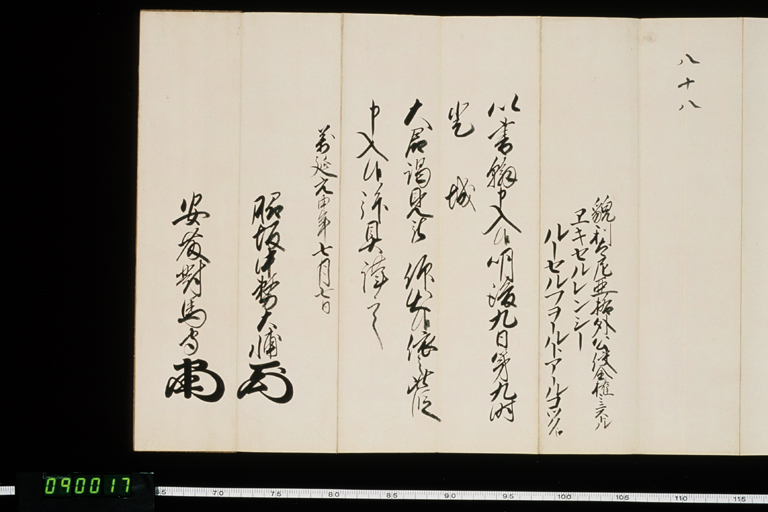 八十八
貌利太尼亜
外公使全権ミニストル
ヱキセルレンシー
ルーセルフヲールトアールコック
以書翰申入候明後九日第九時
登城
大君謁見被 仰出候依此段
申入候拝具謹言
萬延元申年七月七日
脇坂中務大輔
安藤對馬守
090017
7.0 7.5 8.0 8.5 9.0 9.5 10.0 10.5 11.0 11.5